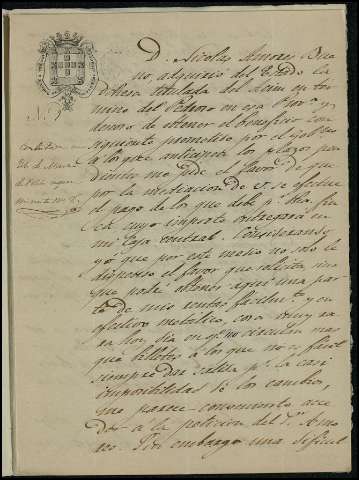 D. Nicolas Amores Bue
no, adquirio del Estado la
dehesa titulada del
mino del Pedroso en esa Prov.ª y
deseoso de obtener el beneficio con
siguiente prometido por el Gob.no
á los q.e anticipen los plazos por
me pide el favor de que
por la mediacion de V. se efectue
el pago de los que debe p.r otra fin
ca cuyo importe entregará en
mi Caja central. Considerando
yo que por este medio no solo le
dispenso el favor que solicita sino
que podré obtener aqui una par
te de mis rentas facilm.te y en
efectivo metalico, cosa muy ra
ra hoy dia en q.e no circulan mas
que billetes á los que no es facil
siempre dar salida p.r la casi
imposibilidad de los cambios,
me parece conveniente acce
der á la peticion del S.r Amo
res. Sin embargo una dificul
N.
Contestada en
de Marzo